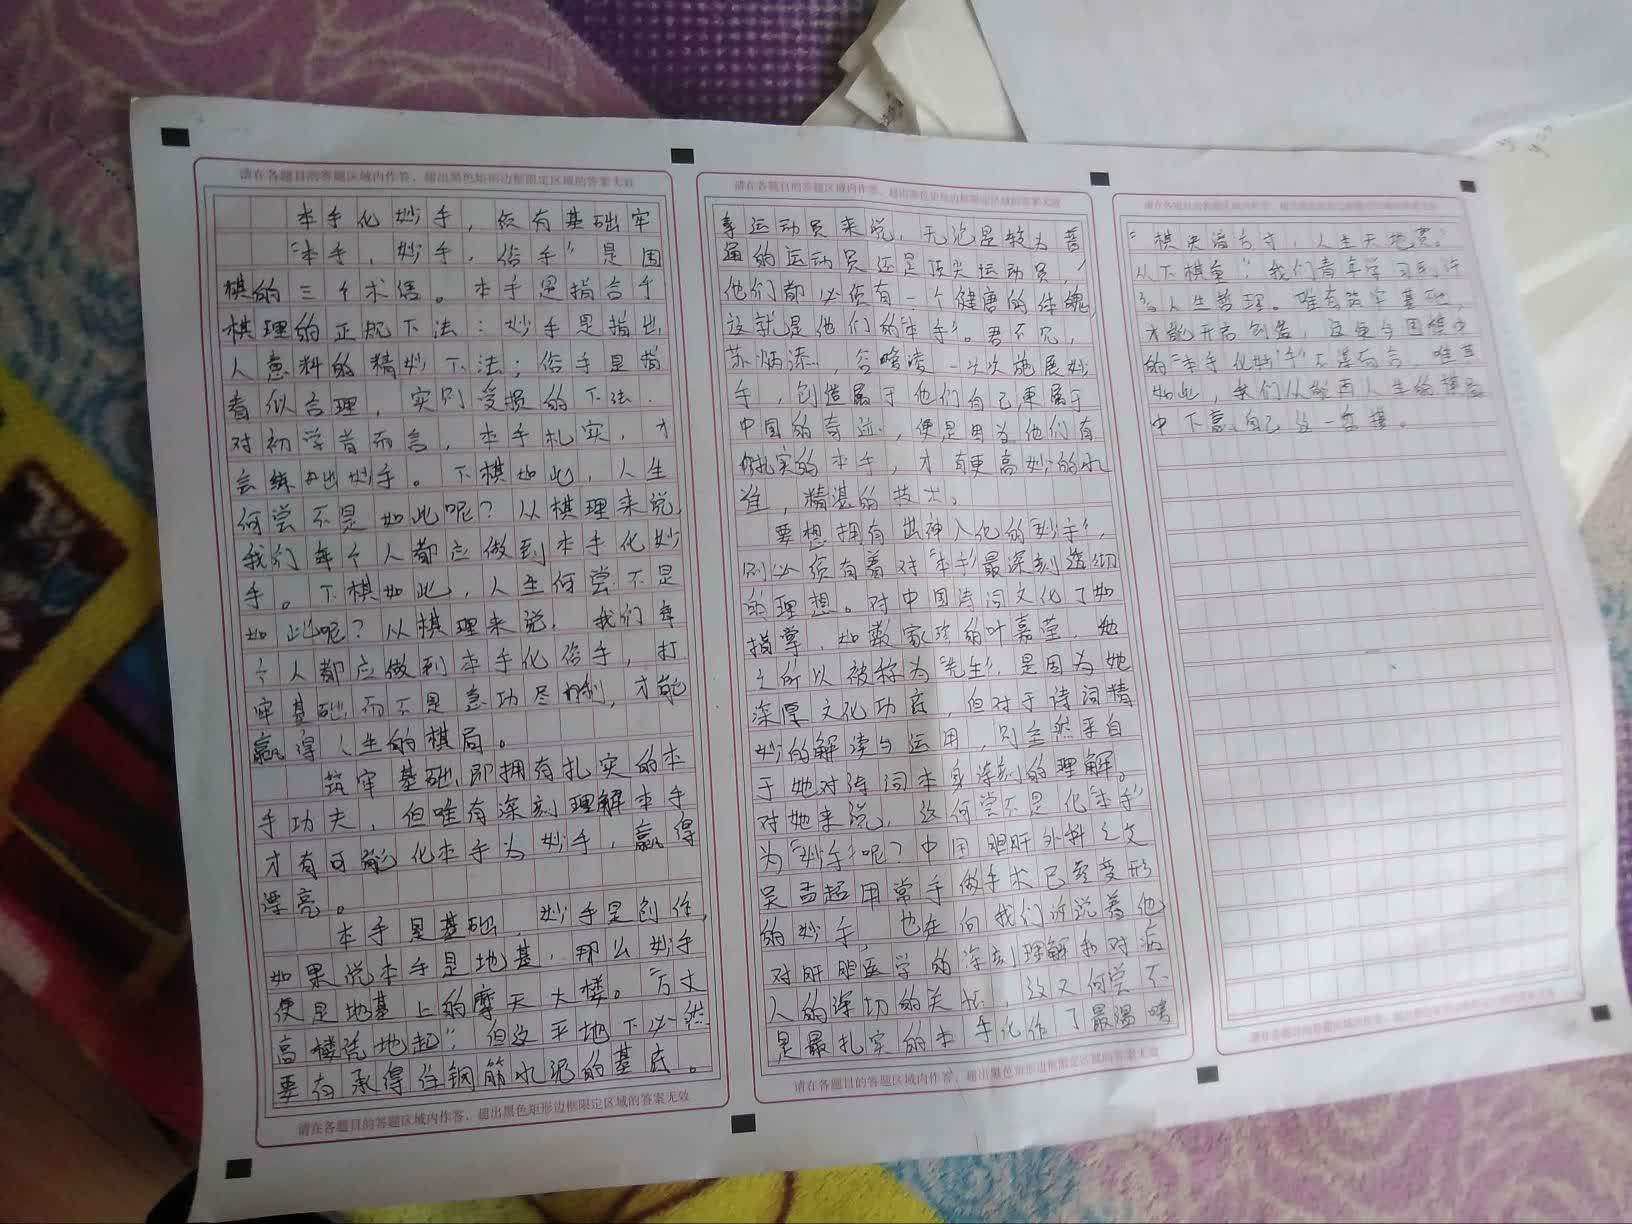 请在各题目的答题区域内作答，超出黑色矩形边框限定区域的答案无效
本手化妙手，仅有基础牢
“本手，妙手，俗手”是围
棋的三个术语。本手是指合乎
棋理的正规下法；妙手是指出
人意料的精妙下法；俗手是指
看似合理，实则受损的下法．
对初学者而言，本手扎实，才
会练出妙手。下棋如此，人生
何尝不是如此呢？从棋理来说，
我们每个人都应做到本手化妙
手。下棋如此，人生何尝不是
如此呢？从棋理来说，我们每
个人都应做到本手化俗手，打
牢基础而不是急功尽利，才能
赢得人生的棋局。
筑牢基础，即拥有扎实的本
手功夫，但唯有深刻理解本手
才有可能化本手为妙手，赢得
漂亮。
本手是基础，妙手是创作，
如果说本手是地基，那么妙手
便是地基上的摩天大楼。“万丈
高楼凭地起”，但这平地下必然
要有承得住钢筋水泥的基底。
请在各题目的答题区域内作答，超出黑色矩形边框限定区域的答案无效
请在各题目的答题区域内作答，超出黑色矩形边框限定区域的答案无效
运动员来说，无论是较为普
通的运动员还是顶尖运动员，
他们都必须有一个健康的体魄，
这就是他们的“本手”。君不见，
苏炳添，谷爱凌一次次施展妙
手，创造属于他们自己，更属于
中国的奇迹，便是因为他们有
扎实的本手，才有更高妙的水
准，精湛的技术。
要想拥有出神入化的“妙手”，
则必须有着对“本手”最深刻透彻
的理想。对中国诗词文化了如
指掌，如数家珍的叶嘉莹，她
之所以被称为“先生”，是因为她
深厚文化功底，但对于诗词精
妙的解读与运用，则全然来自
于她对诗词本身深刻的理解。
对她来说，这何尝不是化“本手”
为“妙手”呢？中国肝胆外科之父
吴孟超用常手做手术已至变形
的妙手，也在向我们诉说着他
对肝胆医学的深刻理解和对病
人的深切的关怀，这又何尝不
是最扎实的本手化作了最温暖
请在各题目的答题区域内作答，超出黑色矩形边框限定区域的答案无效
请在各题目的答题区域内作答，超出黑色矩形边框限定区域的答案无效
方寸，人生天地宽。”
从下棋，我们青年学习到许
人生哲理。唯有筑牢基础，
才能开启创造，这便与围棋中
的“本手化妙手”不谋而合，唯其
如此，我们从能再人生的棋局
中下赢自己这一盘棋。
请在各题目的答题区域内作答，超出黑色矩形边框限定区域的答案无效